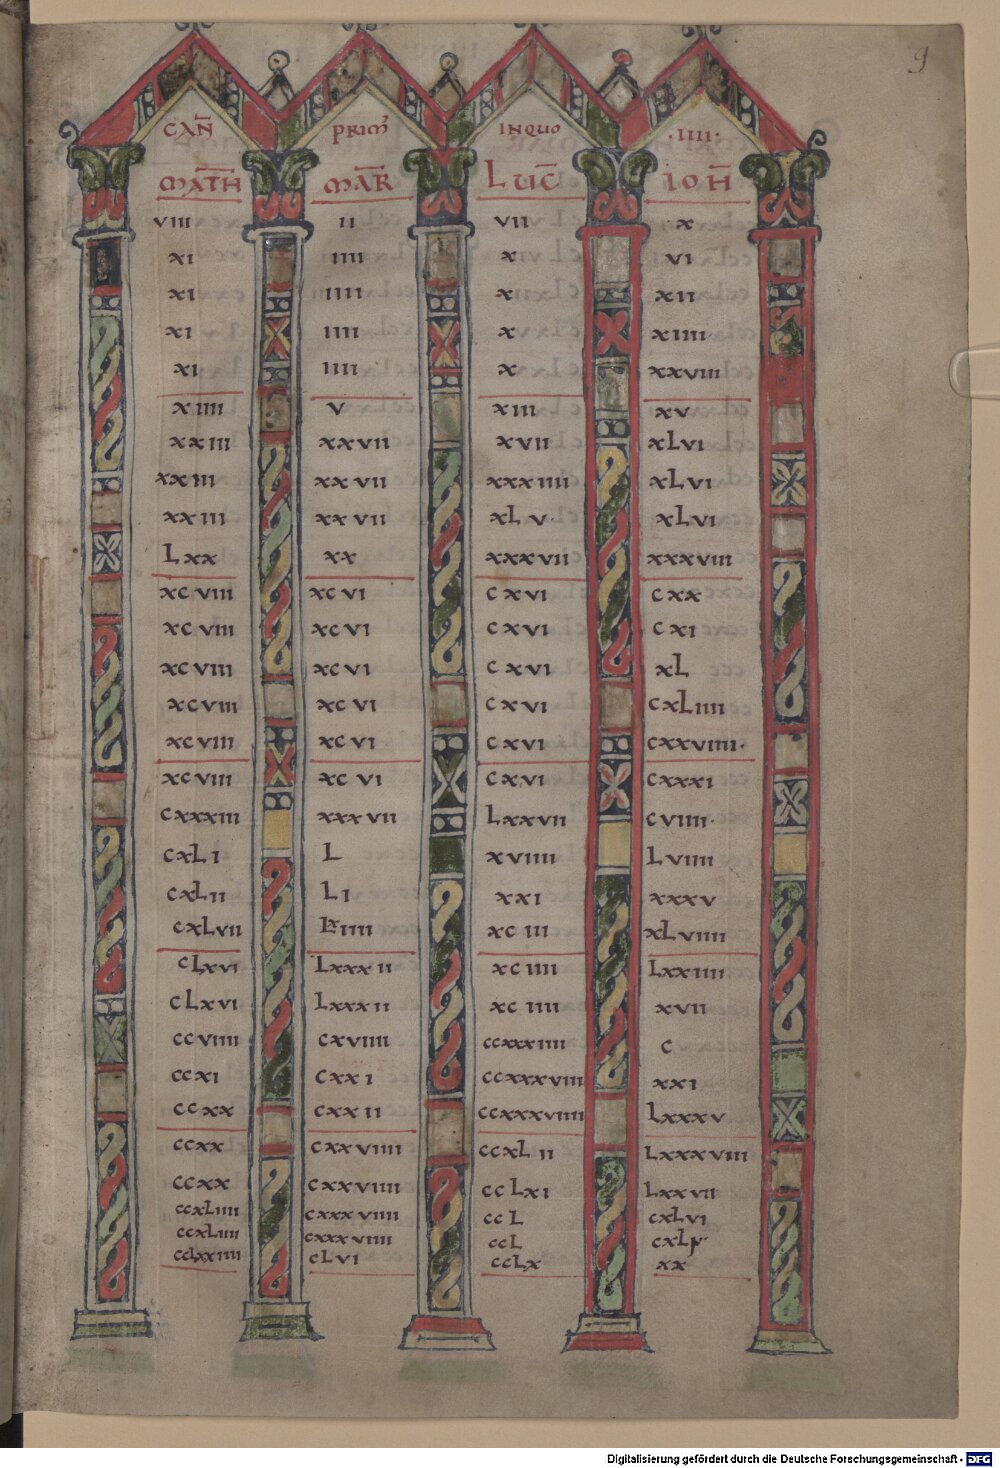 9
CAÑ PRIM̃ INQUO ·IIII·
MATH MAR LUC IOH
VIII II VII X
XI IIII X VI
XI IIII X XII
XI IIII X XIIII
XI IIII X XXVIII
XIIII V XIII XV
XXIII XXVII XVII XLVI
XXIII XXVII XXXIIII XLVI
XXIII XXVII XLV· XLVI
LXX XX XXXVII XXXVIII
XCVIII XCVI CXVI CXX
XCVIII XCVI CXVI CXI
XCVIII XCVI CXVI XL
XCVIII XCVI CXVI CXLIIII
XCVIII XCVI CXVI CXXVIIII·
XCVIII XCVI CXVI CXXXI
CXXXIII XXXVII LXXVII CVIIII·
CXLI L XVIIII LVIIII
CXLII LI XXI XXXV
CXLVII XCIII XLVIIII
CLXVI LXXXII XCIIII LXXIIII
CLXVI LXXXII XCIIII XVII
CCVIIII CXVIIII CCXXXIIII C
CCXI CXXI CCXXXVIII XXI
CCXX CXXII CCXXXVIIII LXXXV
CCXX CXXVIIII CCXLII LXXXVIII
CCXX CXXVIIII CCLXI LXXVII
CCXLIIII CXXXVIIII CCL CXLVI
CCXLIIII CXXXVIIII CCL
CCLXXIIII CLVI CCLX XX
Digitalisierung gefördert durch die Deutsche Forschungsgemeinschaft - DFG